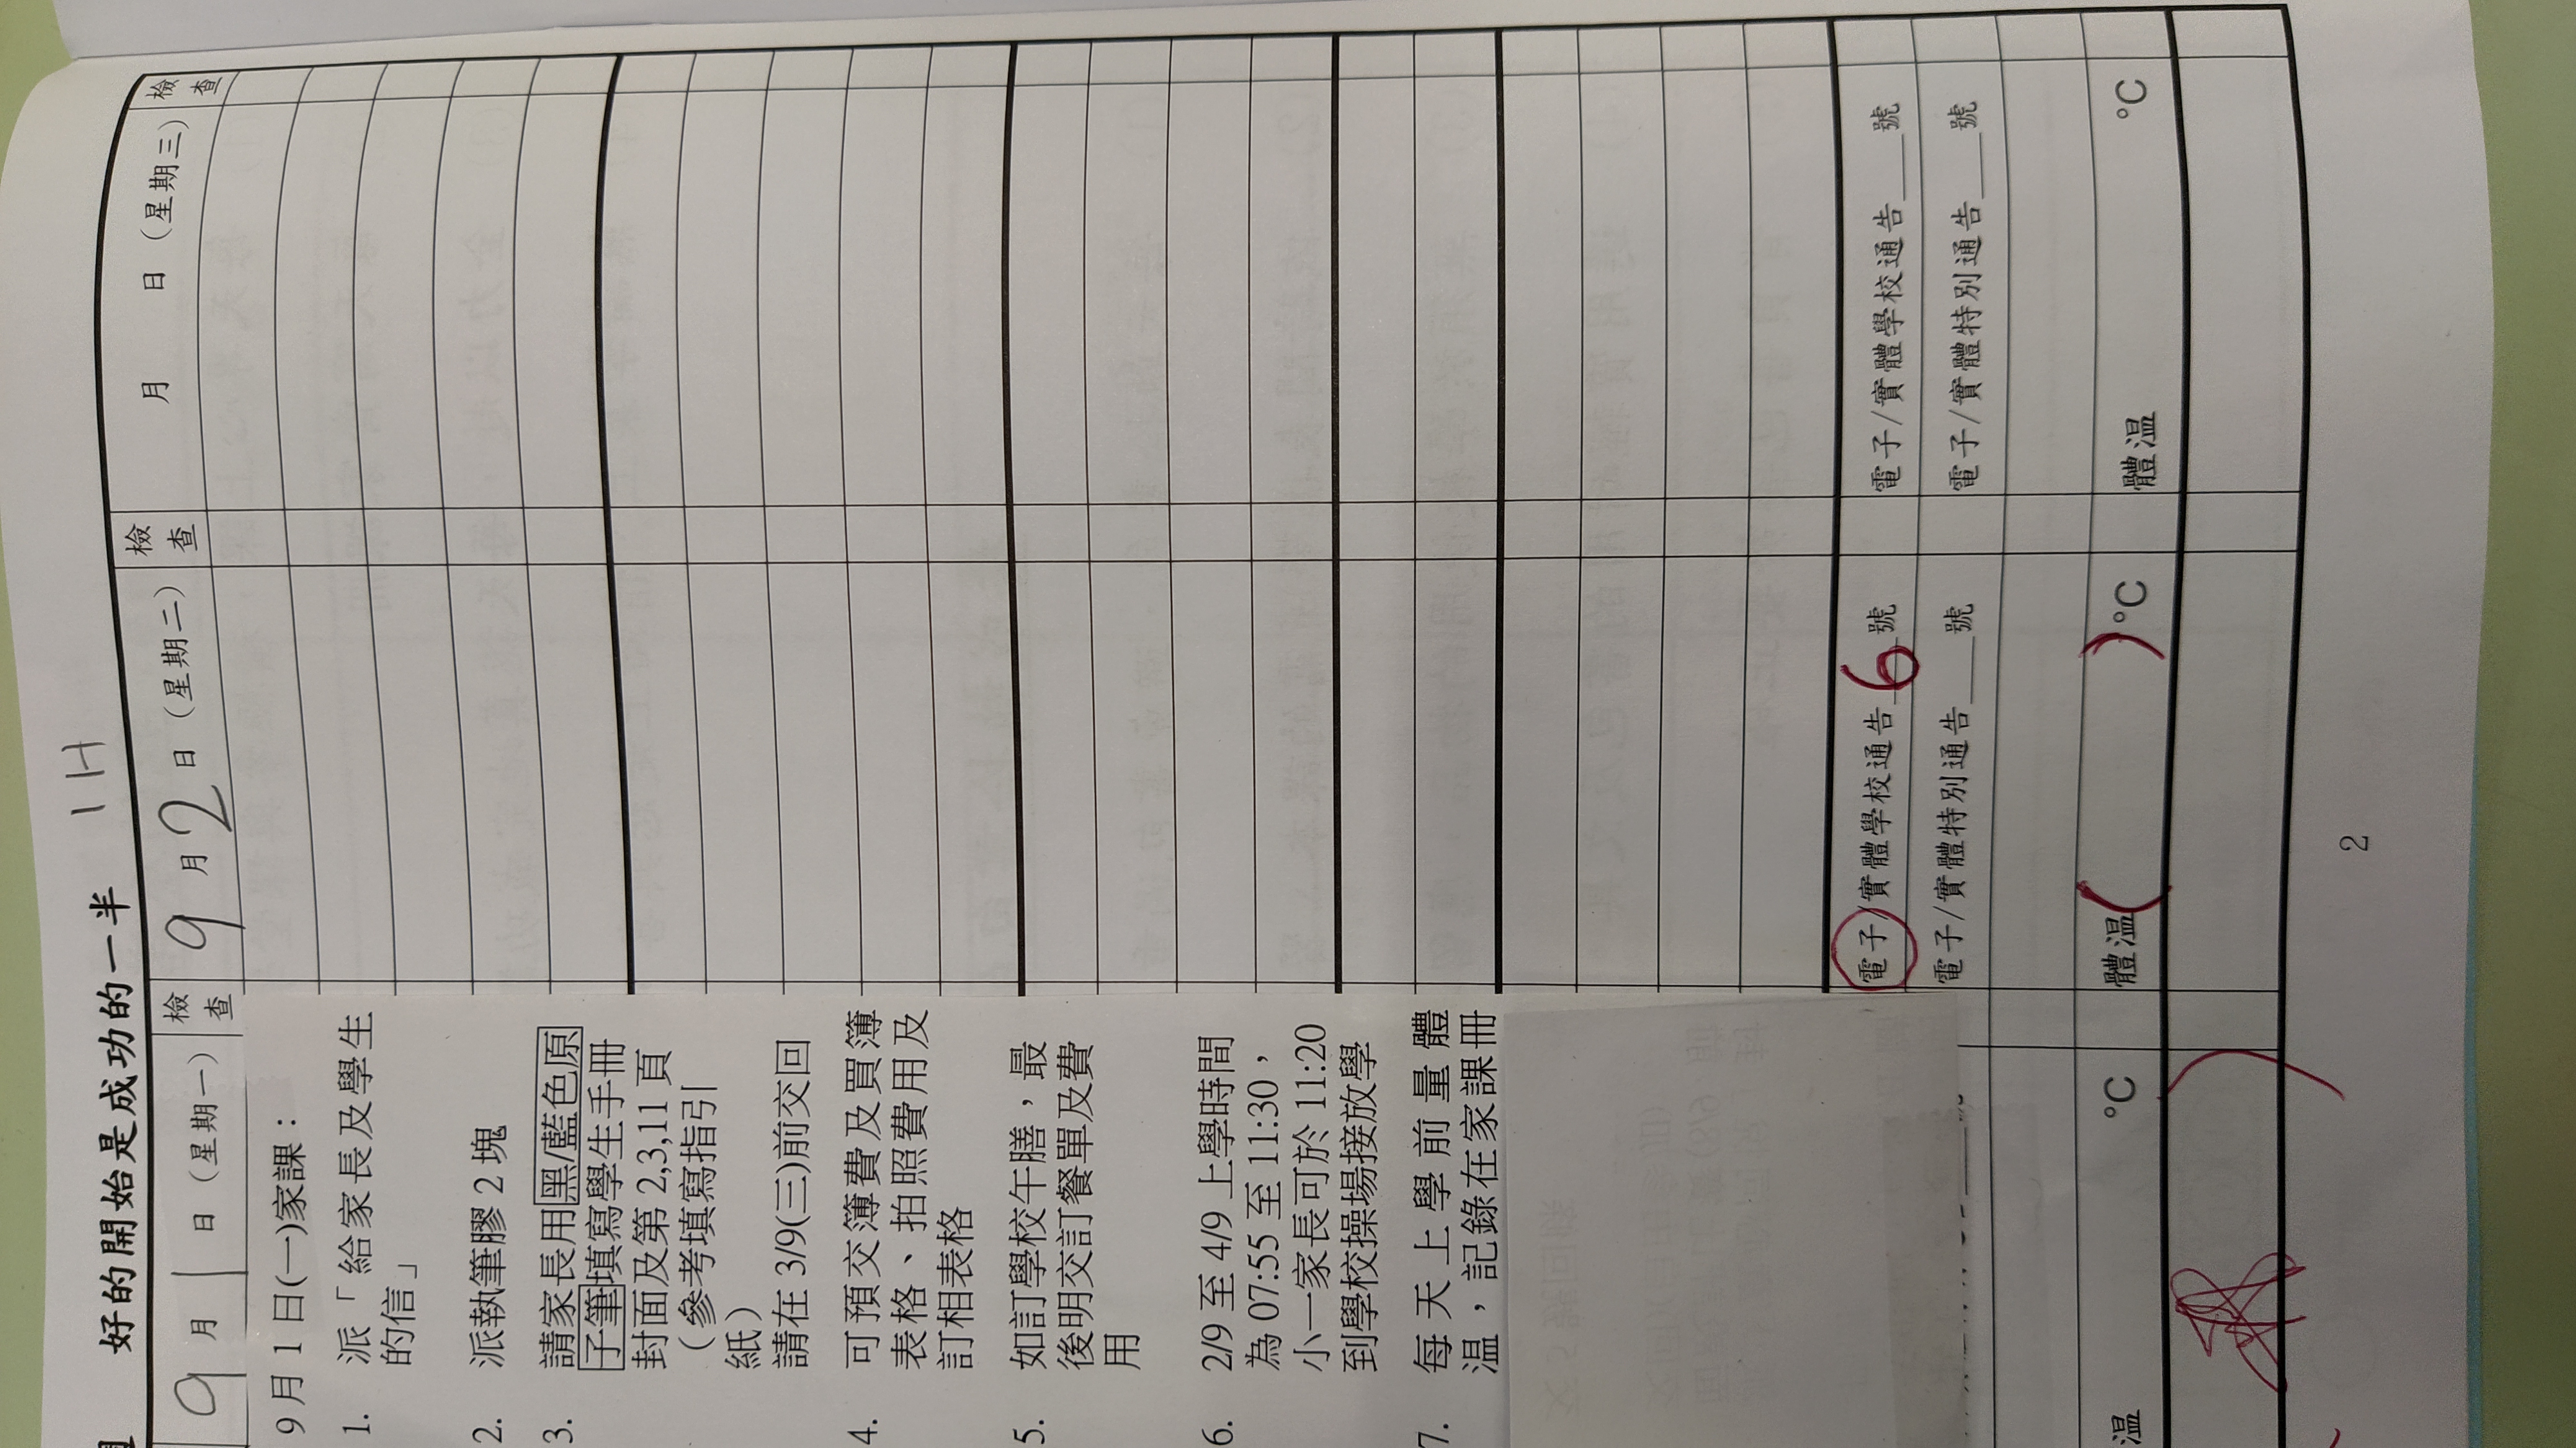 好的開始是成功的一半 1H
9月1日（星期一） 檢查
9月2日（星期二） 檢查
月 日（星期三） 檢查
9月1日(一)家課：
1. 派「給家長及學生
的信」
2. 派執筆膠2塊
3. 請家長用黑/藍色原
子筆填寫學生手冊
封面及第2,3,11頁
（參考填寫指引
紙）
請在3/9(三)前交回
4. 可預交簿費及買簿
表格、拍照費用及
訂相表格
5. 如訂學校午膳，最
後明交訂餐單及費
用
6. 2/9至4/9上學時間
為07:55至11:30，
小一家長可於11:20
到學校操場接放學
7. 每天上學前量體
温，記錄在家課冊
温 °C
電子/實體學校通告6號
電子/實體特別通告___號
體温( )°C
電子/實體學校通告___號
電子/實體特別通告___號
體温 °C
2